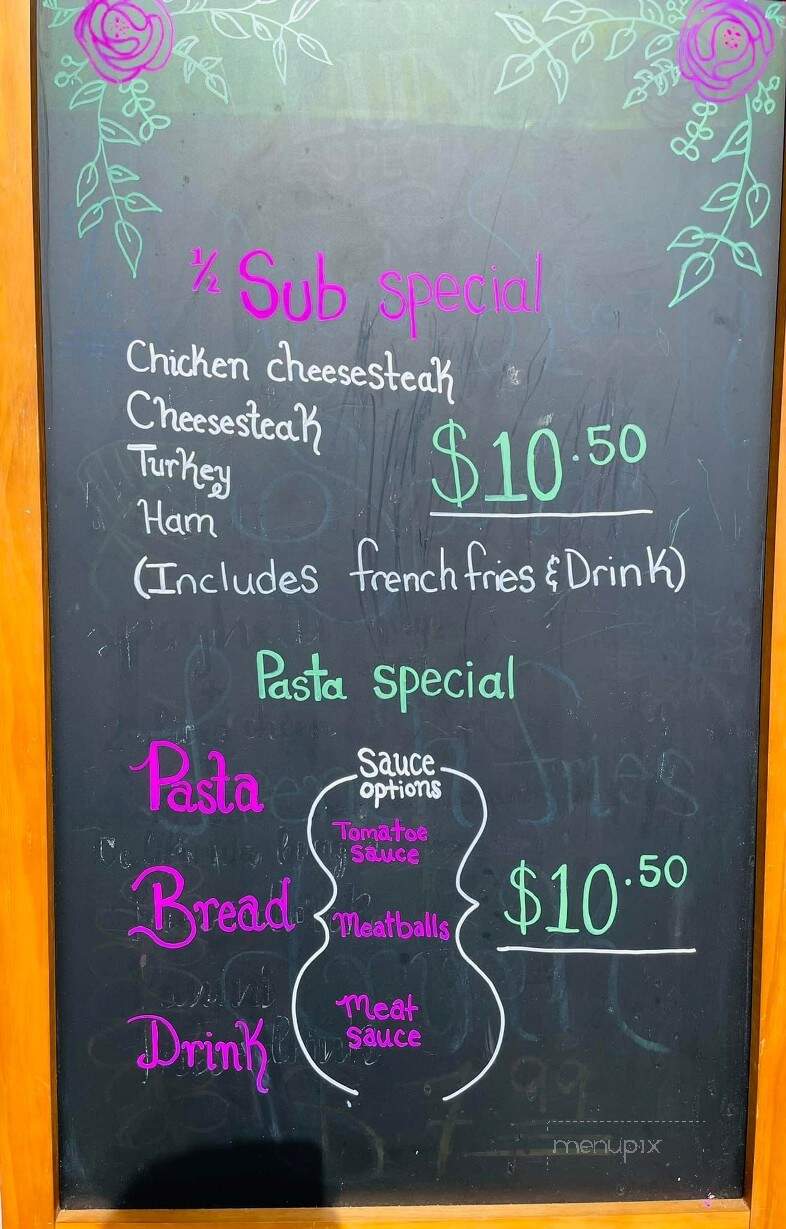 ½ Sub special
Chicken cheesesteak
Cheesesteak
$10.50
Turkey
Ham
(Includes french fries & Drink)
Pasta special
Pasta
Bread
Drink
Sauce
options
Tomatoe
sauce
Meatballs
Meat
sauce
$10.50
menupix